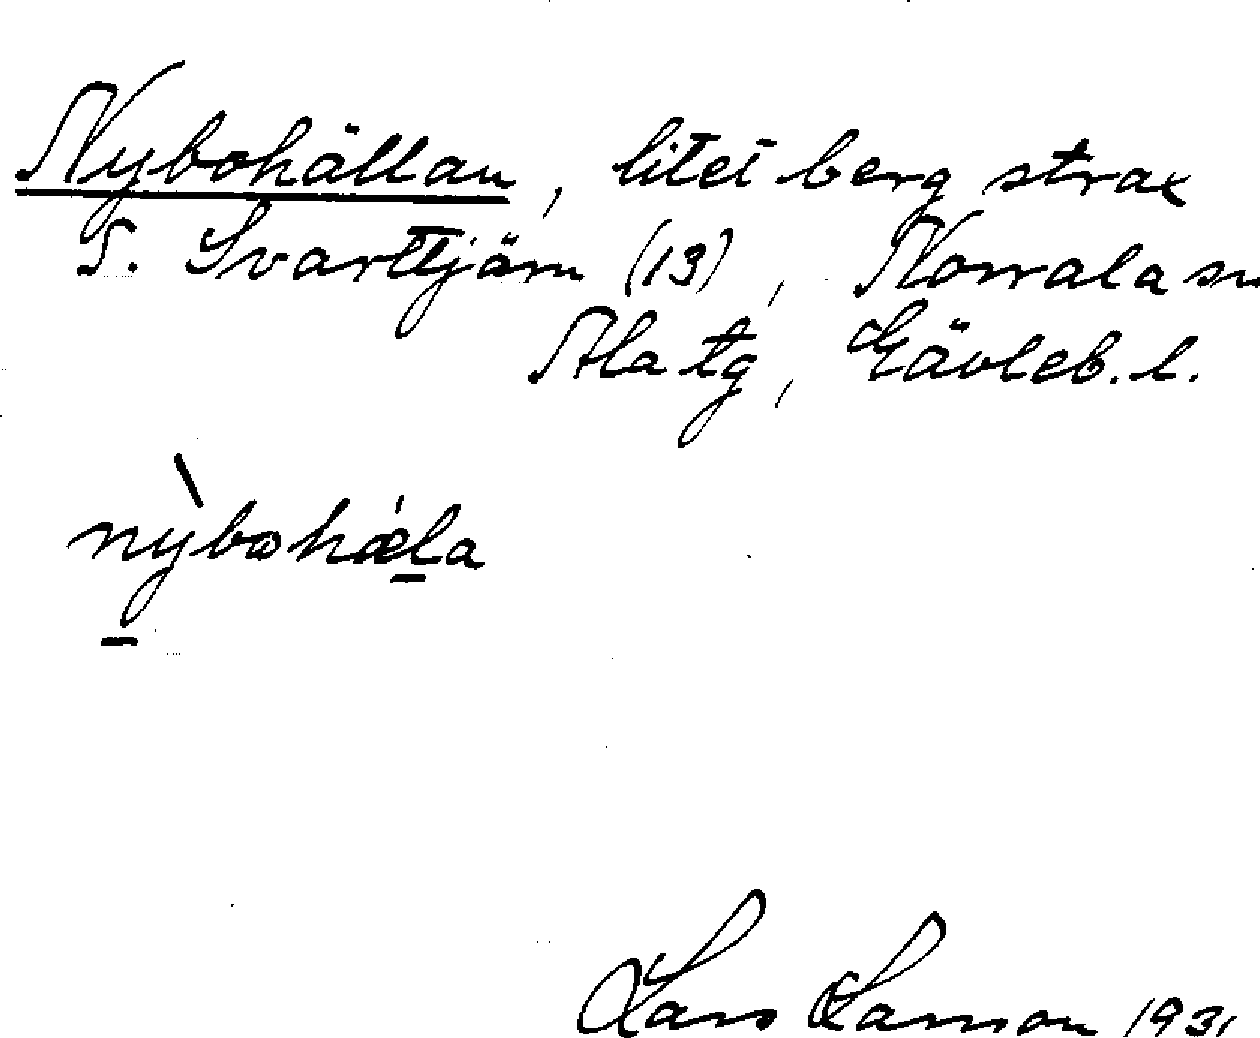 Nybohällan, litet berg strax
S. Svarttjärn (13), Norrala sn
Ala tg, Gävleb. l.
nỳbohæ̀la
Lars Larsson 1931